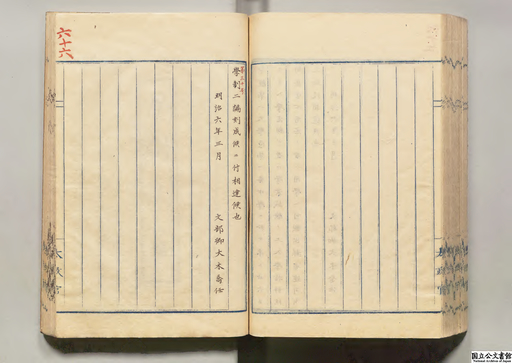 六十六
學制二編刻成候ニ付相達候也
明治六年三月
文部卿大木喬任
太政官
国立公文書館
National Archives of Japan